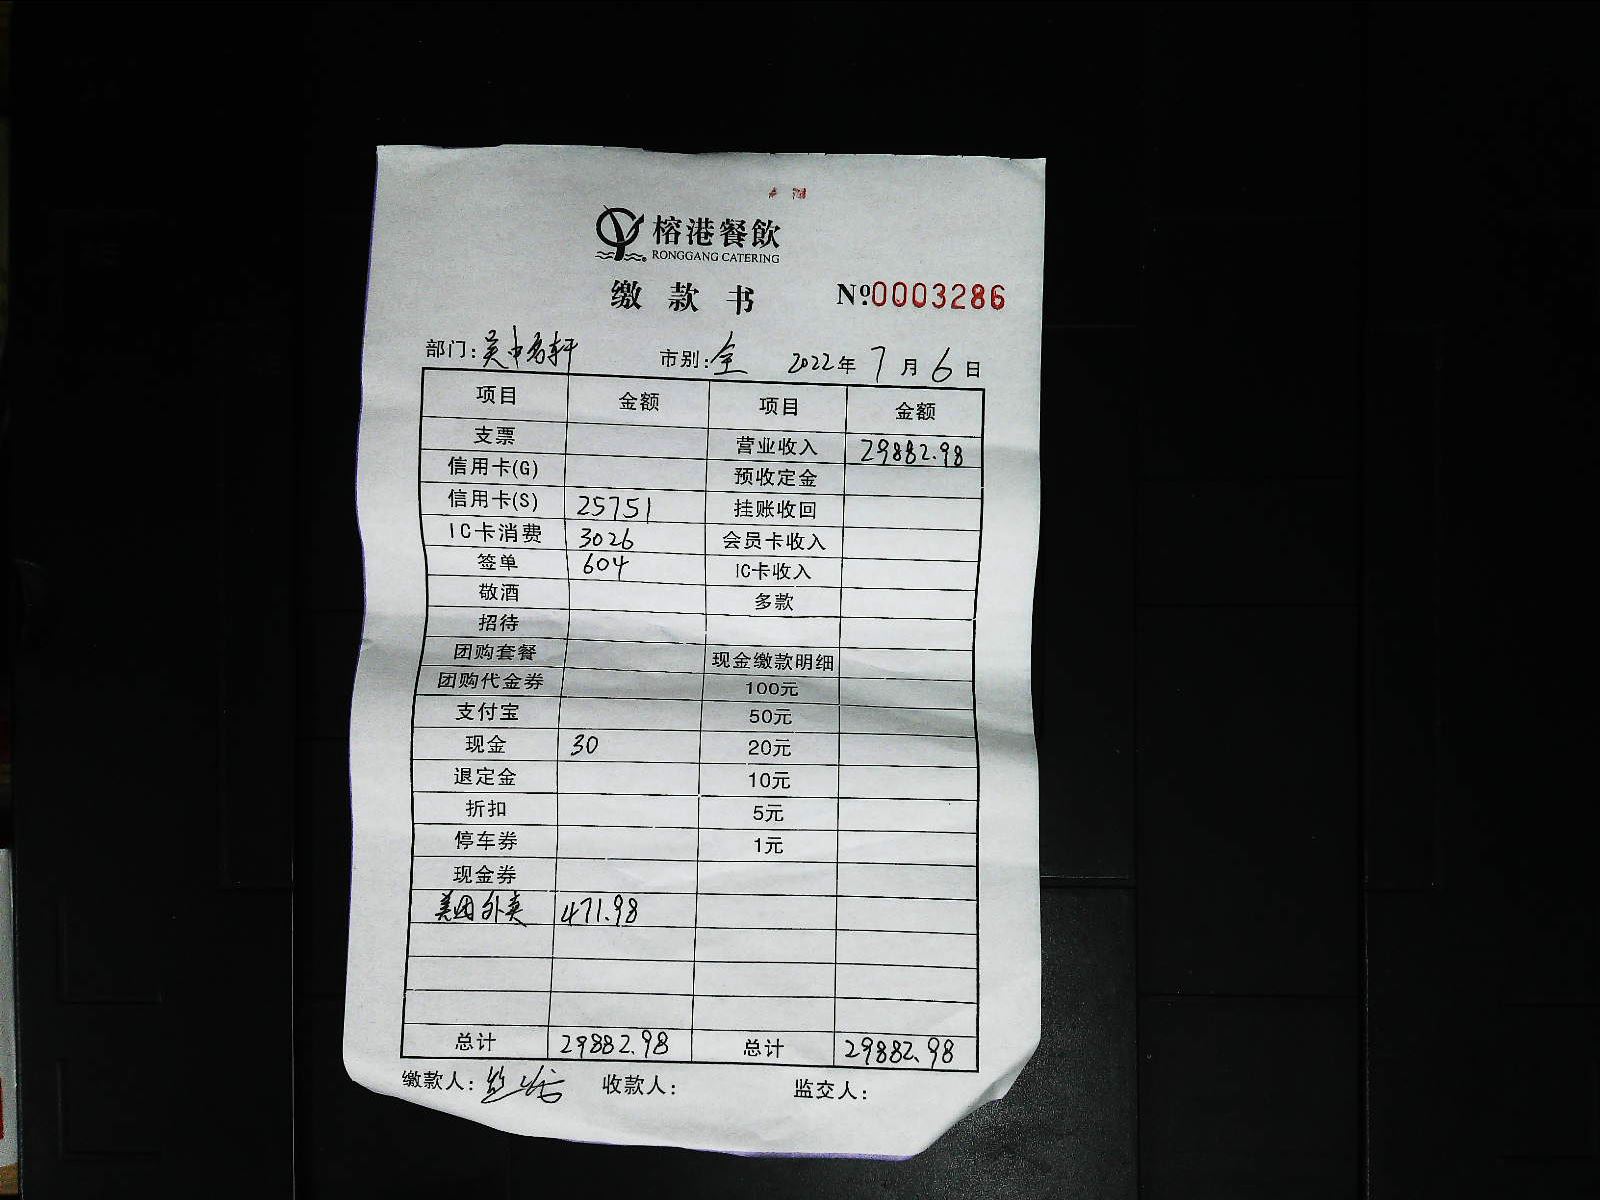 榕港餐飲
RONGGANG CATERING
缴款书 Nº0003286
部门:吴中名轩 市别:全 2022年7月6日
项目 金额 项目 金额
支票 营业收入 29882.98
信用卡(G) 预收定金
信用卡(S) 25751 挂账收回
IC卡消费 3026 会员卡收入
签单 604 IC卡收入
敬酒 多款
招待
团购套餐 现金缴款明细
团购代金券 100元
支付宝 50元
现金 30 20元
退定金 10元
折扣 5元
停车券 1元
现金券
美团外卖 471.98
总计 29882.98 总计 29882.98
缴款人: 收款人: 监交人: